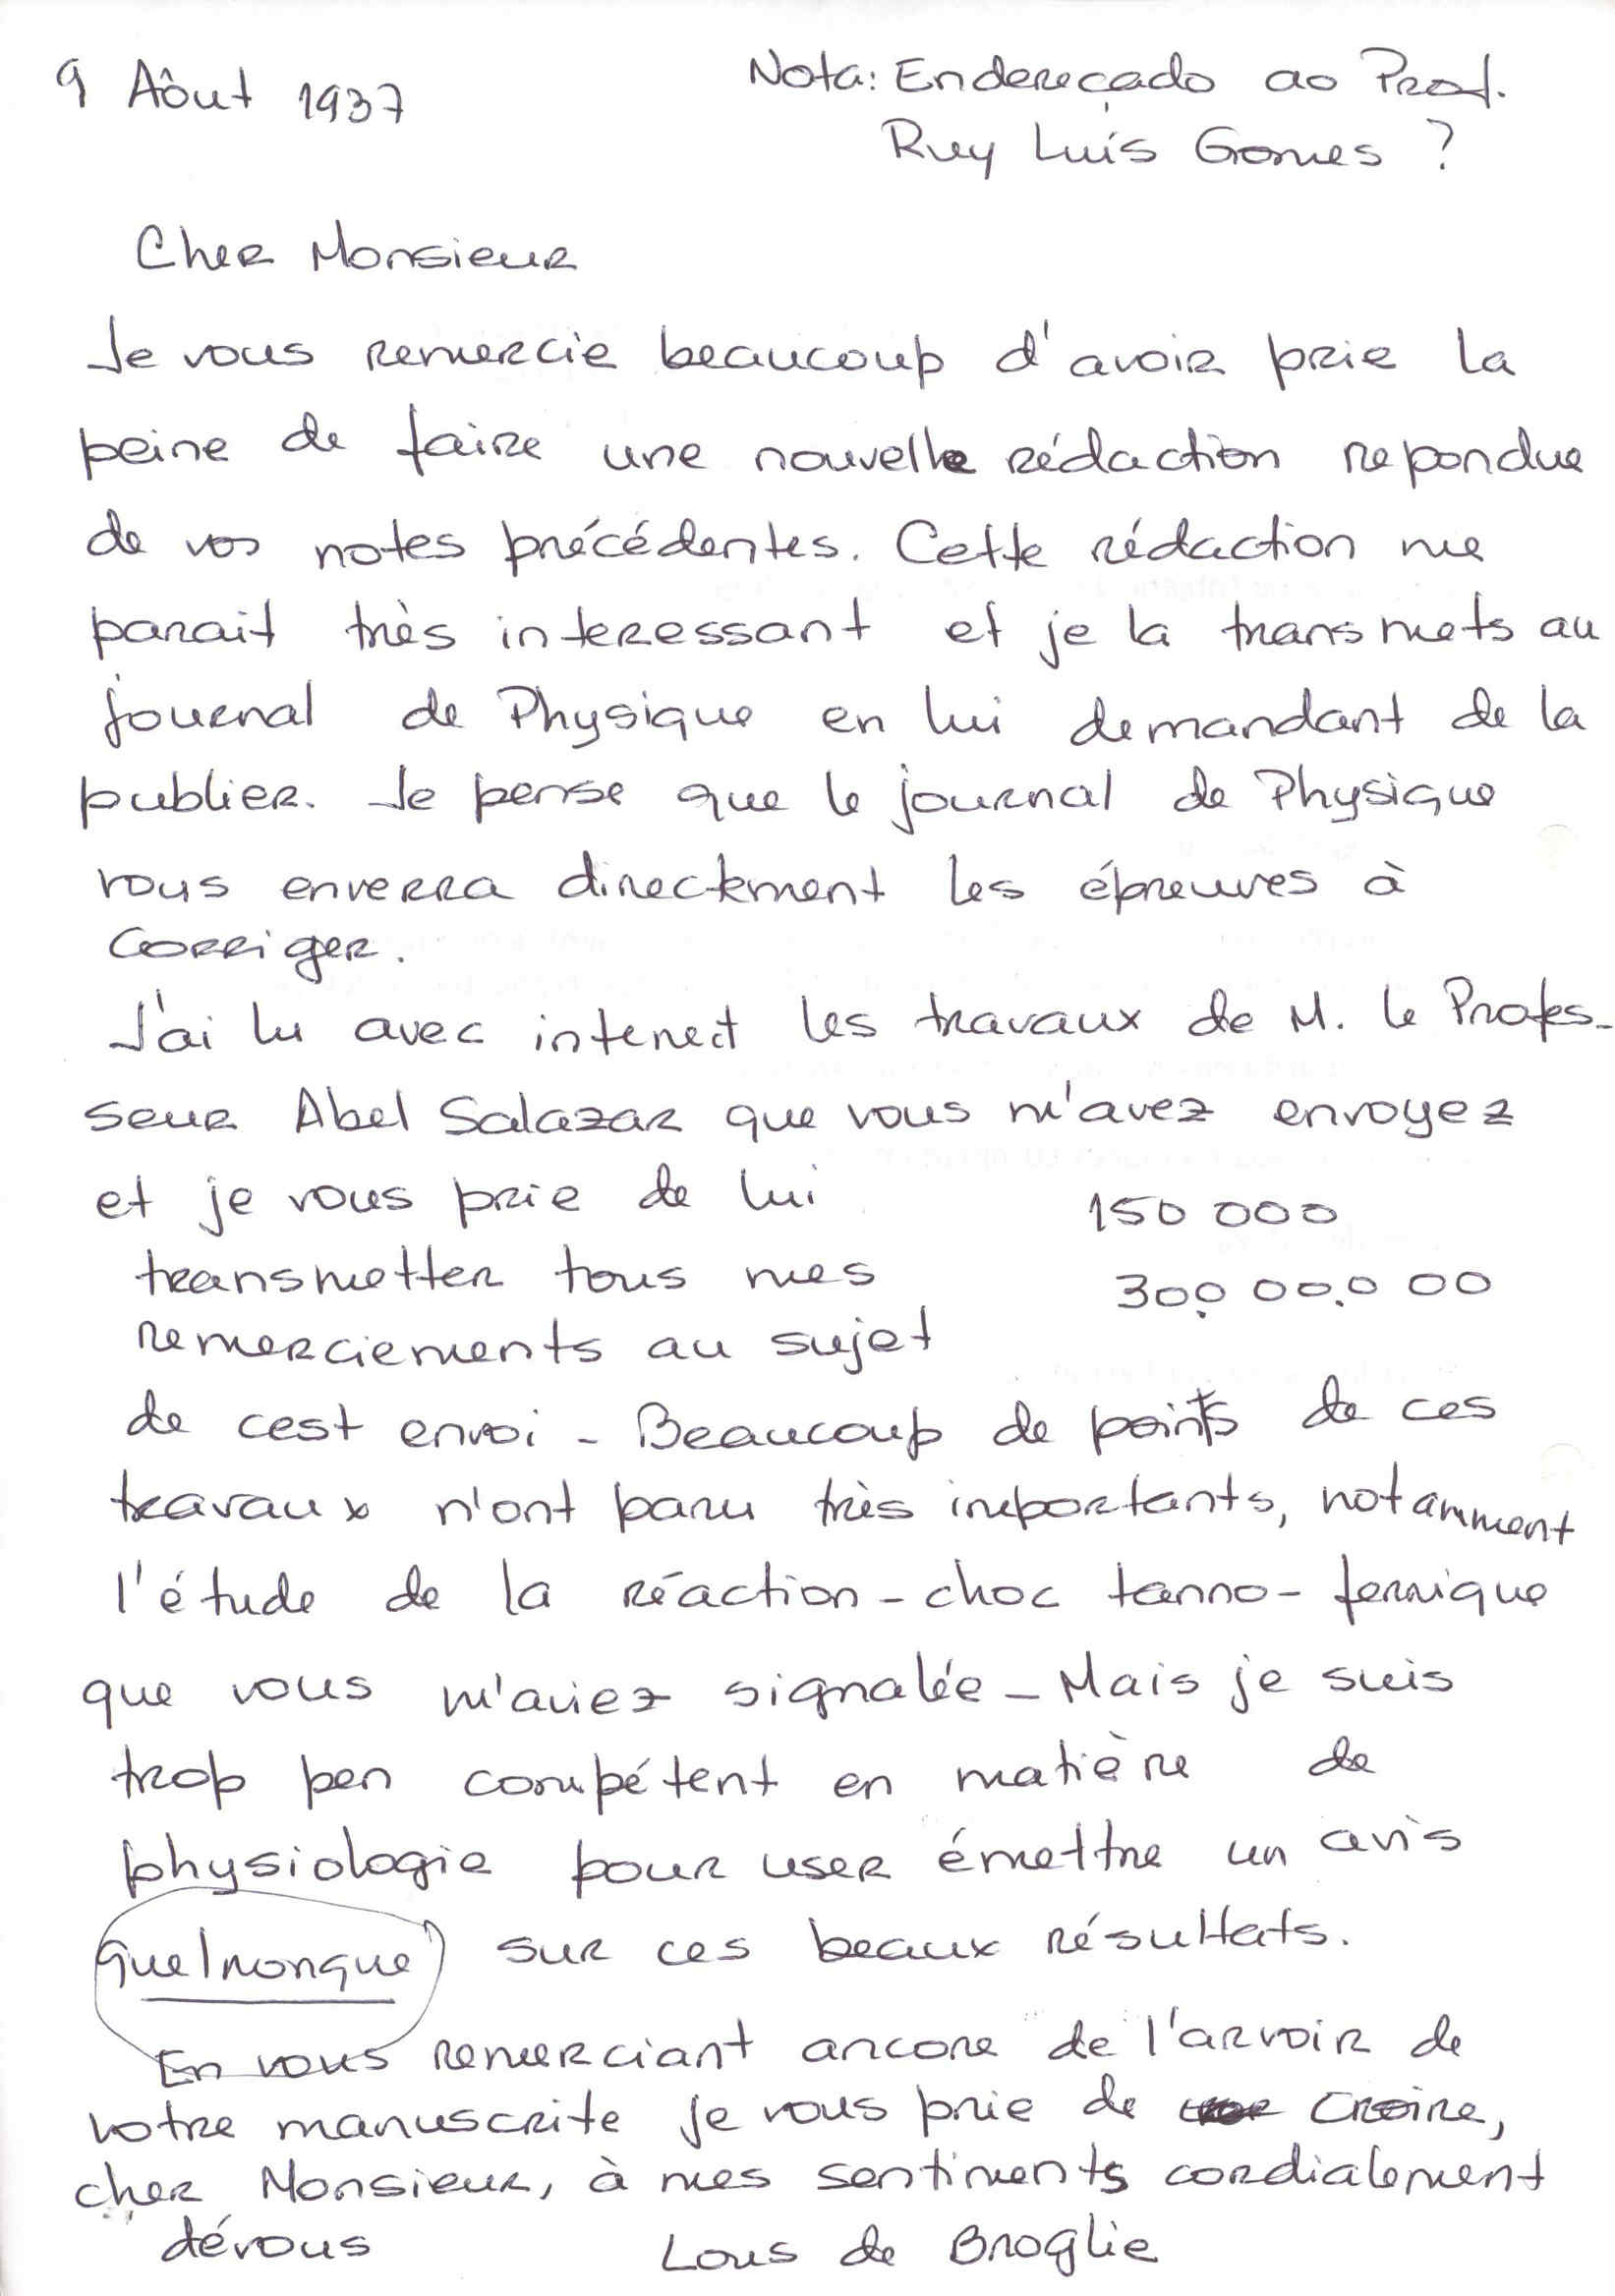 9 Aôut 1937
Nota: Endereçado ao Prof.
Ruy Luís Gomes ?
Cher Monsieur
Je vous remercie beaucoup d'avoir prie la
peine de faire une nouvelle rédaction repondue
de vos notes précédentes. Cette rédaction me
parait très interessant et je la transmets au
journal de Physique en lui demandant de la
publier. Je pense que le journal de Physique
vous enverra directement les épreuves à
corriger.
J'ai lu avec interect les travaux de M. le Profes-
seur Abel Salazar que vous m'avez envoyez
et je vous prie de lui
150 000
transmetter tous mes
300 00.0 00
remerciements au sujet
de cest envoi - Beaucoup de points de ces
travaux n'ont paru très importants, notamment
l'étude de la réaction-choc tanno-ferrique
que vous m'aviez signalée - Mais je suis
trop pen compétent en matière de
physiologie pour user émettre un avis
quelnonque sur ces beaux résultats.
En vous remerciant ancore de l'arvoir de
votre manuscrite je vous prie de croire,
cher Monsieur, à mes sentiments cordialement
dérous Lous de Broglie